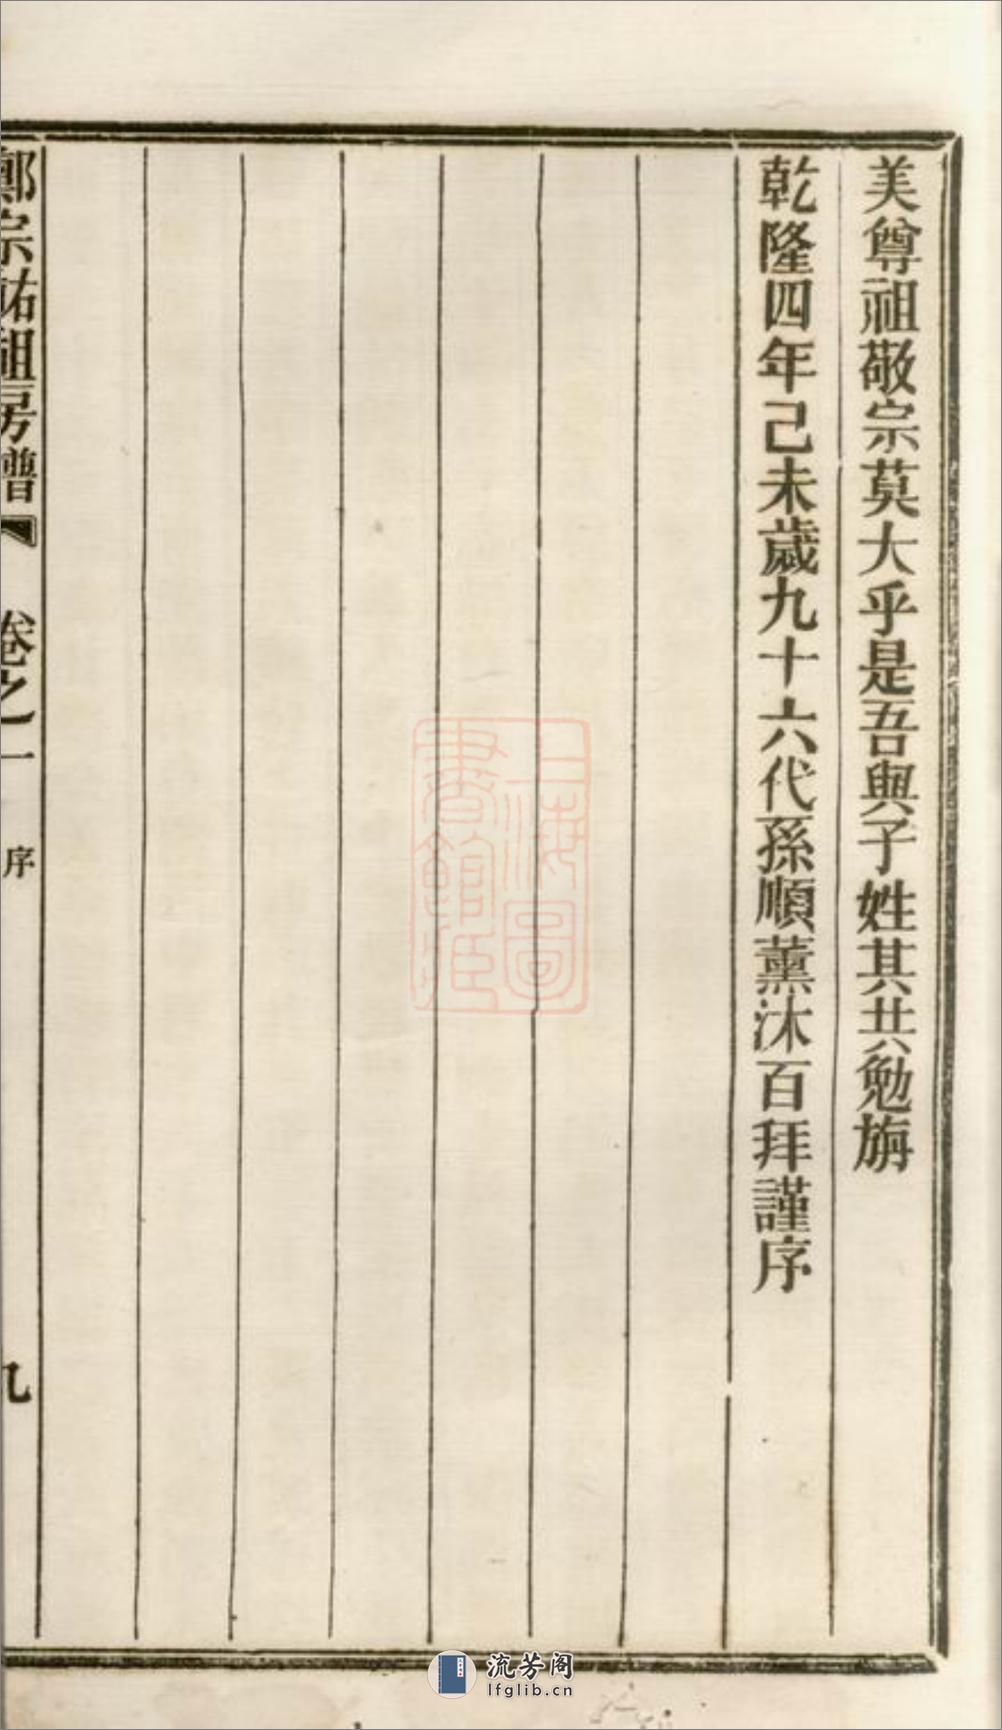 美尊祖敬宗莫大乎是吾與子姓其共勉旃
乾隆四年己未歲九十六代孫順薰沐百拜謹序
鄭宗祐祖房譜 卷之一 序 九
上海圖
書館藏
流芳阁
lfglib.cn